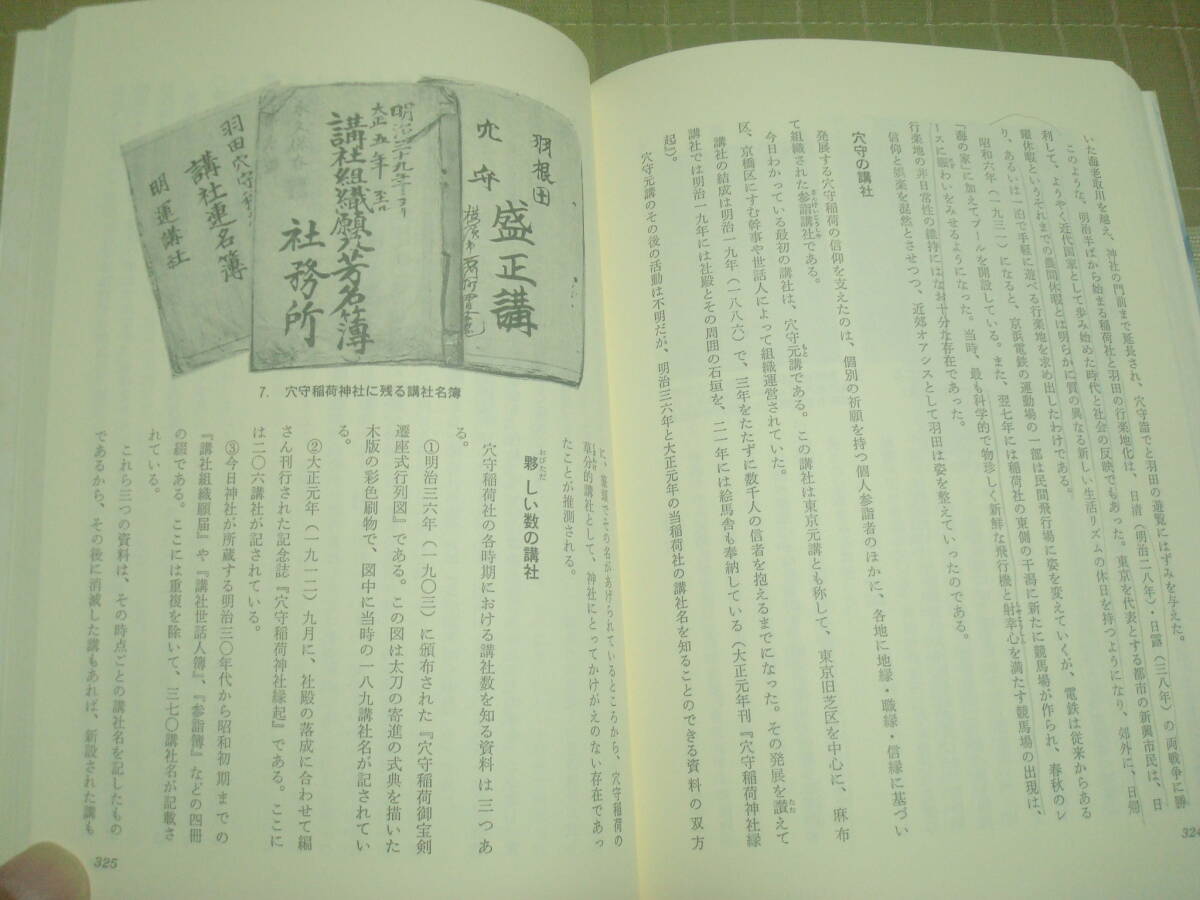 いた海老取川を越え、神社の門前まで延長され、穴守詣でと羽田の遊覧にはずみを与えた。
このような、明治半ばから始まる稲荷社と羽田の行楽地化は、日清(明治二八年)・日露(三八年)の両戦争に勝
利して、ようやく近代国家として歩み始めた時代と社会の反映でもあった。東京を代表とする都市の新興市民は、日
曜休暇というそれまでの農間休暇とは明らかに質の異なる新しい生活リズムの休日を持つようになり、郊外に、日帰
り、あるいは一泊で手軽に遊べる行楽地を求め出したわけである。
昭和六年(一九三一)になると、京浜電鉄の運動場の一部は民間飛行場に姿を変えていくが、電鉄は従来からある
「海の家」に加えてプールを開設している。また、翌七年には稲荷社の東側の干潟に新たに競馬場が作られ、春秋のレ
ースに賑わいをみせるようになった。当時、最も科学的で物珍しく新鮮な飛行機と射幸心を満たす競馬場の出現は、
行楽地の非日常性の維持にはなお十分な存在であった。
信仰と娯楽を混然とさせつつ、近郊オアシスとして羽田は姿を整えていったのである。
穴守の講社
発展する穴守稲荷の信仰を支えたのは、個別の祈願を持つ個人参詣者のほかに、各地に地縁・職縁・信縁に基づい
て組織された参詣講社である。
今日わかっている最初の講社は、穴守元講である。この講社は東京元講とも称して、東京旧芝区を中心に、麻布
区、京橋区にすむ幹事や世話人によって組織運営されていた。
講社の結成は明治一九年(一八八六)で、三年をたたずに数千人の信者を抱えるまでになった。その発展を讃えて
講社では明治一九年には社殿とその周囲の石垣を、二一年には絵馬舎も奉納している(大正元年刊『穴守稲荷神社縁
起』)。
穴守元講のその後の活動は不明だが、明治三六年と大正元年の当稲荷社の講社名を知ることのできる資料の双方
324
羽根田
穴守
盛正講
明治三十九年ヨリ
大正五年至ル
講社組織願人芳名簿
社務所
羽田穴守
講社連名簿
明運講社
7. 穴守稲荷神社に残る講社名簿
に、筆頭でその名があげられているところから、穴守稲荷の
草分的講社として、神社にとってかけがえのない存在であっ
たことが推測される。
夥しい数の講社
穴守稲荷社の各時期における講社数を知る資料は三つあ
る。
①明治三六年(一九〇三)に頒布された『穴守稲荷御宝剣
遷座式行列図』である。この図は太刀の寄進の式典を描いた
木版の彩色刷物で、図中に当時の一八九講社名が記されてい
る。
②大正元年(一九一二)九月に、社殿の落成に合わせて編
さん刊行された記念誌『穴守稲荷神社縁起』である。ここに
は二〇六講社が記されている。
③今日神社が所蔵する明治三〇年代から昭和初期までの
『講社組織願届』や『講社世話人簿』、『参詣簿』などの四冊
の綴である。ここには重複を除いて、三七〇講社名が記載さ
れている。
これら三つの資料は、その時点ごとの講社名を記したもの
であるから、その後に消滅した講もあれば、新設された講も
325